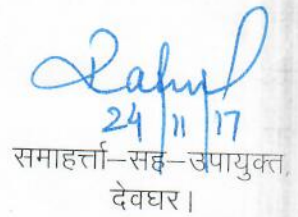 Rahul
24/11/17
समाहर्त्ता–सह–उपायुक्त,
देवघर।